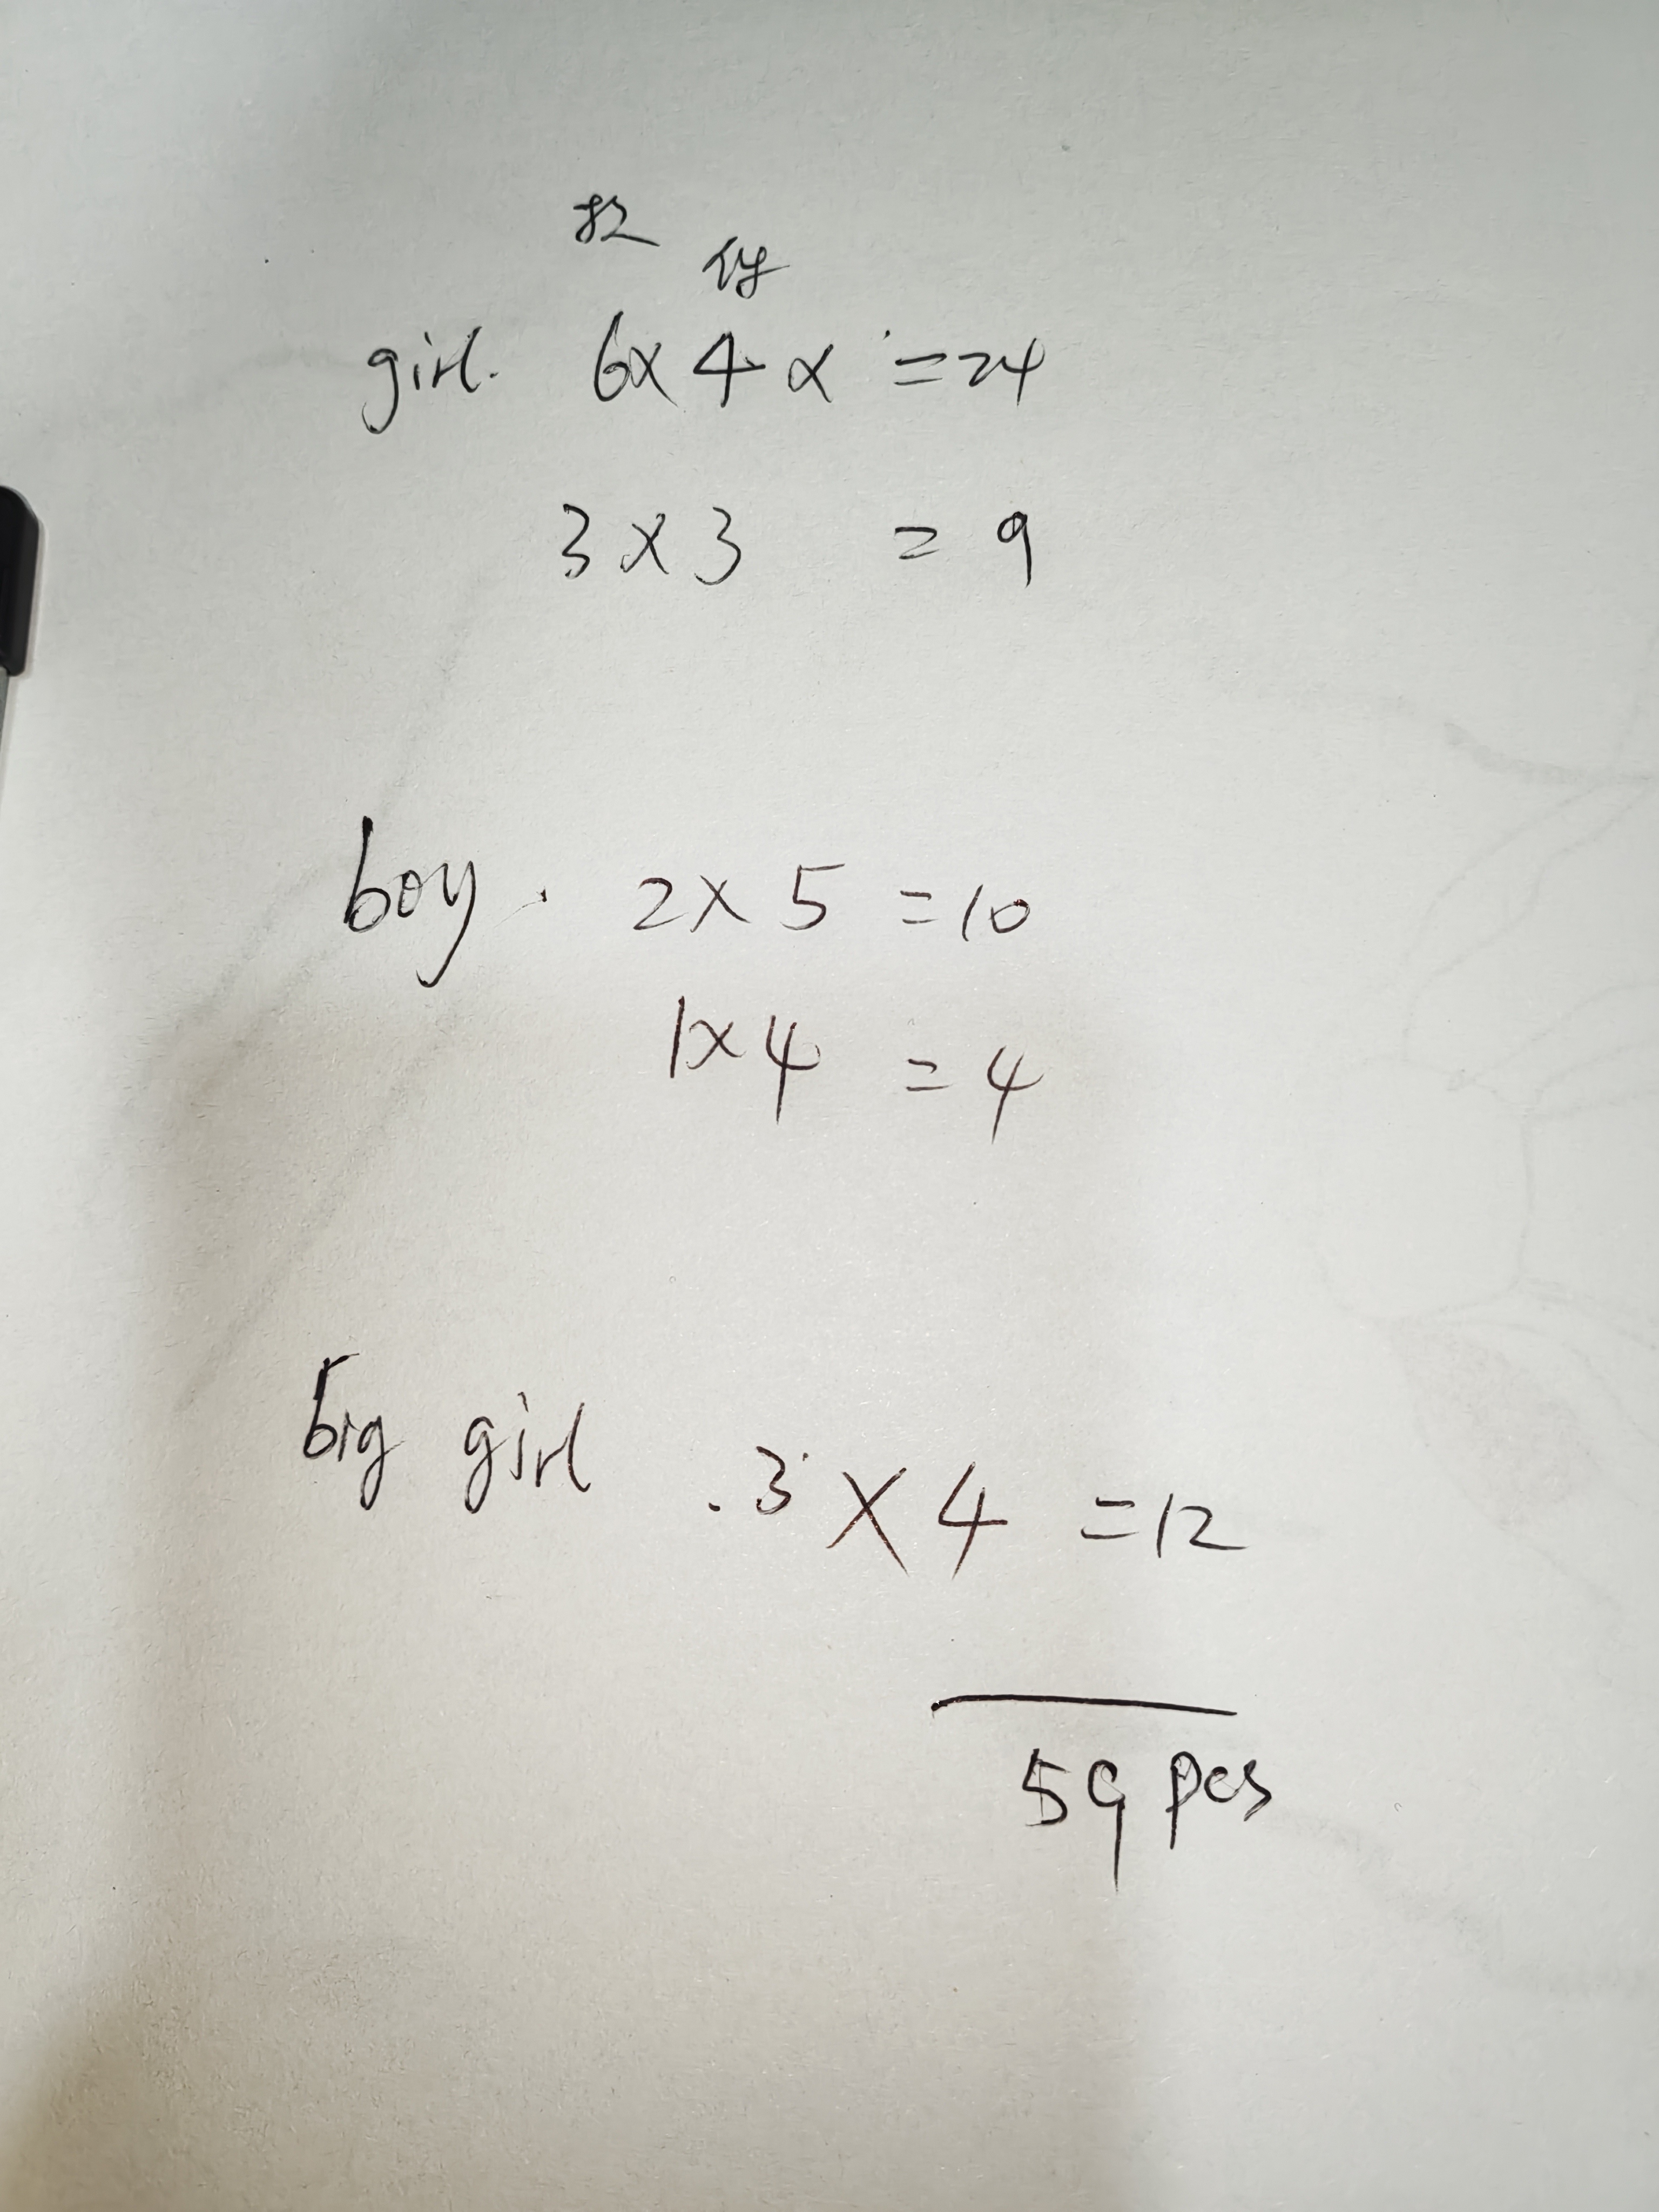 girl. 6x 4 x =24
3 x 3 = 9
boy. 2x 5 =10
1x 4 = 4
big girl . 3 x 4 =12
59 pcs